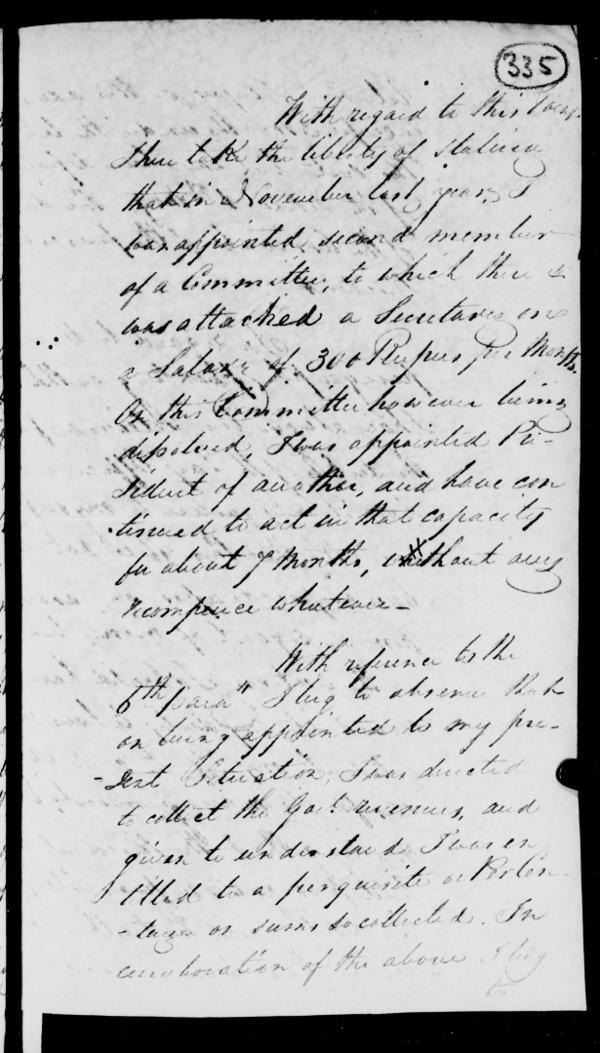 335
With regard to this
I here take the liberty of stating
that in November last year, I
was appointed second member
of a Committee, to which there
was attached a Secretary on
a Salary of 300 Rupees per Month.
this Committee however being
dissolved, I was appointed Pre-
sident of another, and have con
tinued to act in that capacity
for about 7 Months, without any
recompence whatever -
With reference to the
6th para I beg to observe that
on being appointed to my pre-
-sent Situation, I was directed
to collect the Govt. revenues, and
given to understand I was en
titled to a perquisite or Per Cen-
-tage on sums so collected. In
corroboration of the above I beg
to